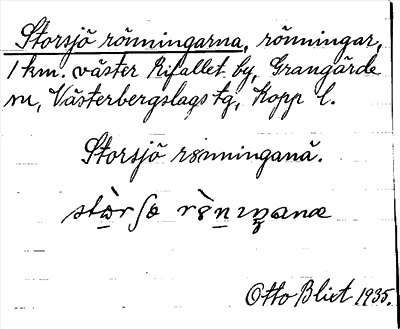 Storsjö rönningarna, rönningar,
1 km. väster Rifallet by, Grangärde
sn, Västerbergslags tg, Kopp l.
Storsjö rönninganä.
Otto Blixt 1935.